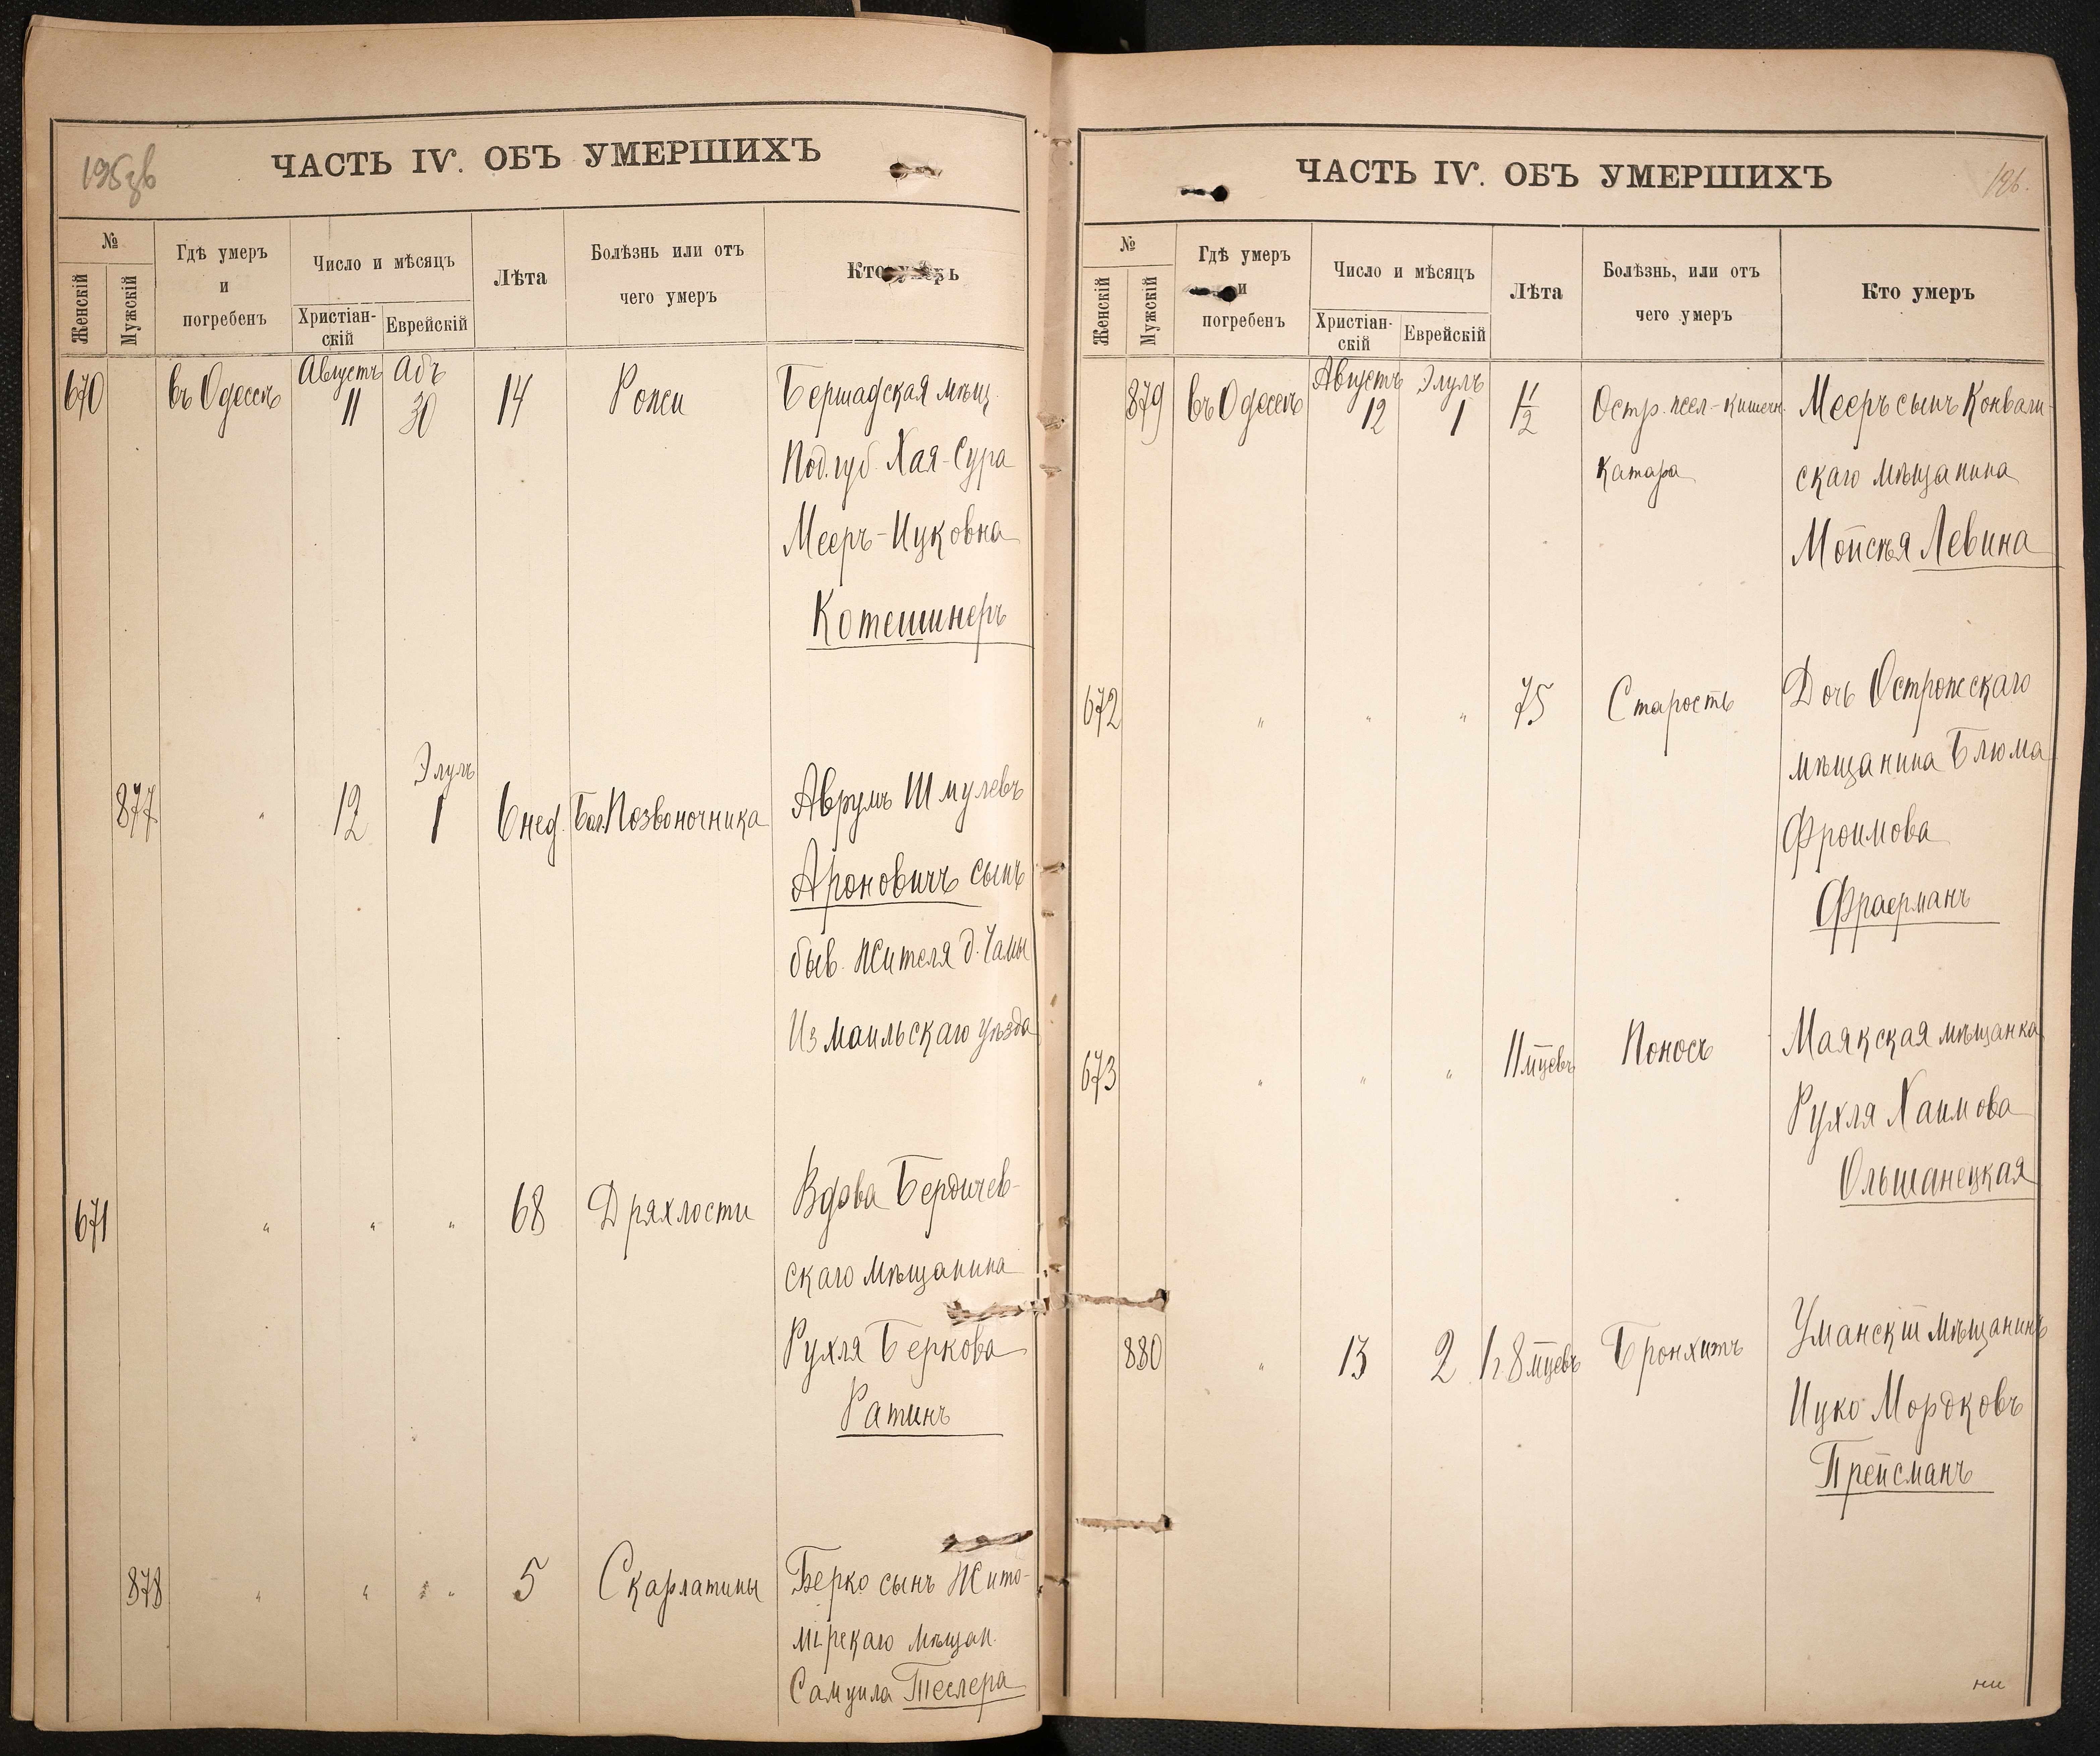 195зв
ЧАСТЬ IV. ОБЪ УМЕРШИХЪ
№
Женскій
Мужскій
Гдѣ умеръ
и
погребенъ
Число и мѣсяцъ
Христіан-
скій
Еврейскій
Лѣта
Болѣзнь или отъ
чего умеръ
Кто умеръ
670 въ Одессѣ Августъ 11 Абъ 30 14 Рожи Бершадская мѣщ.
Под. губ. Хая-Сура
Мееръ-Ицковна
Котешинеръ
877 " 12 Элулъ 1 6 нед. Бол. Позвоночника Аврумъ Шмулевъ
Ароновичъ сынъ
быв. Жителя д.
Измаильскаго уѣзда
671 " " " 68 Дряхлости Вдова Бердичев-
скаго мѣщанина
Рухля Беркова
Ратинъ
878 " " " 5 Скарлатины Берко сынъ Жито-
мірскаго мѣщан.
Самуила Теслера
ЧАСТЬ IV. ОБЪ УМЕРШИХЪ
196.
№
Женскій
Мужскій
Гдѣ умеръ
и
погребенъ
Число и мѣсяцъ
Христіан-
скій
Еврейскій
Лѣта
Болѣзнь, или отъ
чего умеръ
Кто умеръ
879 въ Одессѣ Августъ 12 Элулъ 1 1½ Остр. жел.-кишечн. Мееръ сынъ Конвали-
катара скаго мѣщанина
Мойсѣя Левина
672 " " " 75 Старость Дочь Острожскаго
мѣщанина Блюма
Фроимова
Фраерманъ
673 " " " 11 мцевъ Поносъ Маякская мѣщанка
Рухля Хаимова
Ольшанецкая
880 " 13 2 1 г. 8 мцевъ Бронхитъ Уманскій мѣщанинъ
Ицко Мордковъ
Прейсманъ
ни